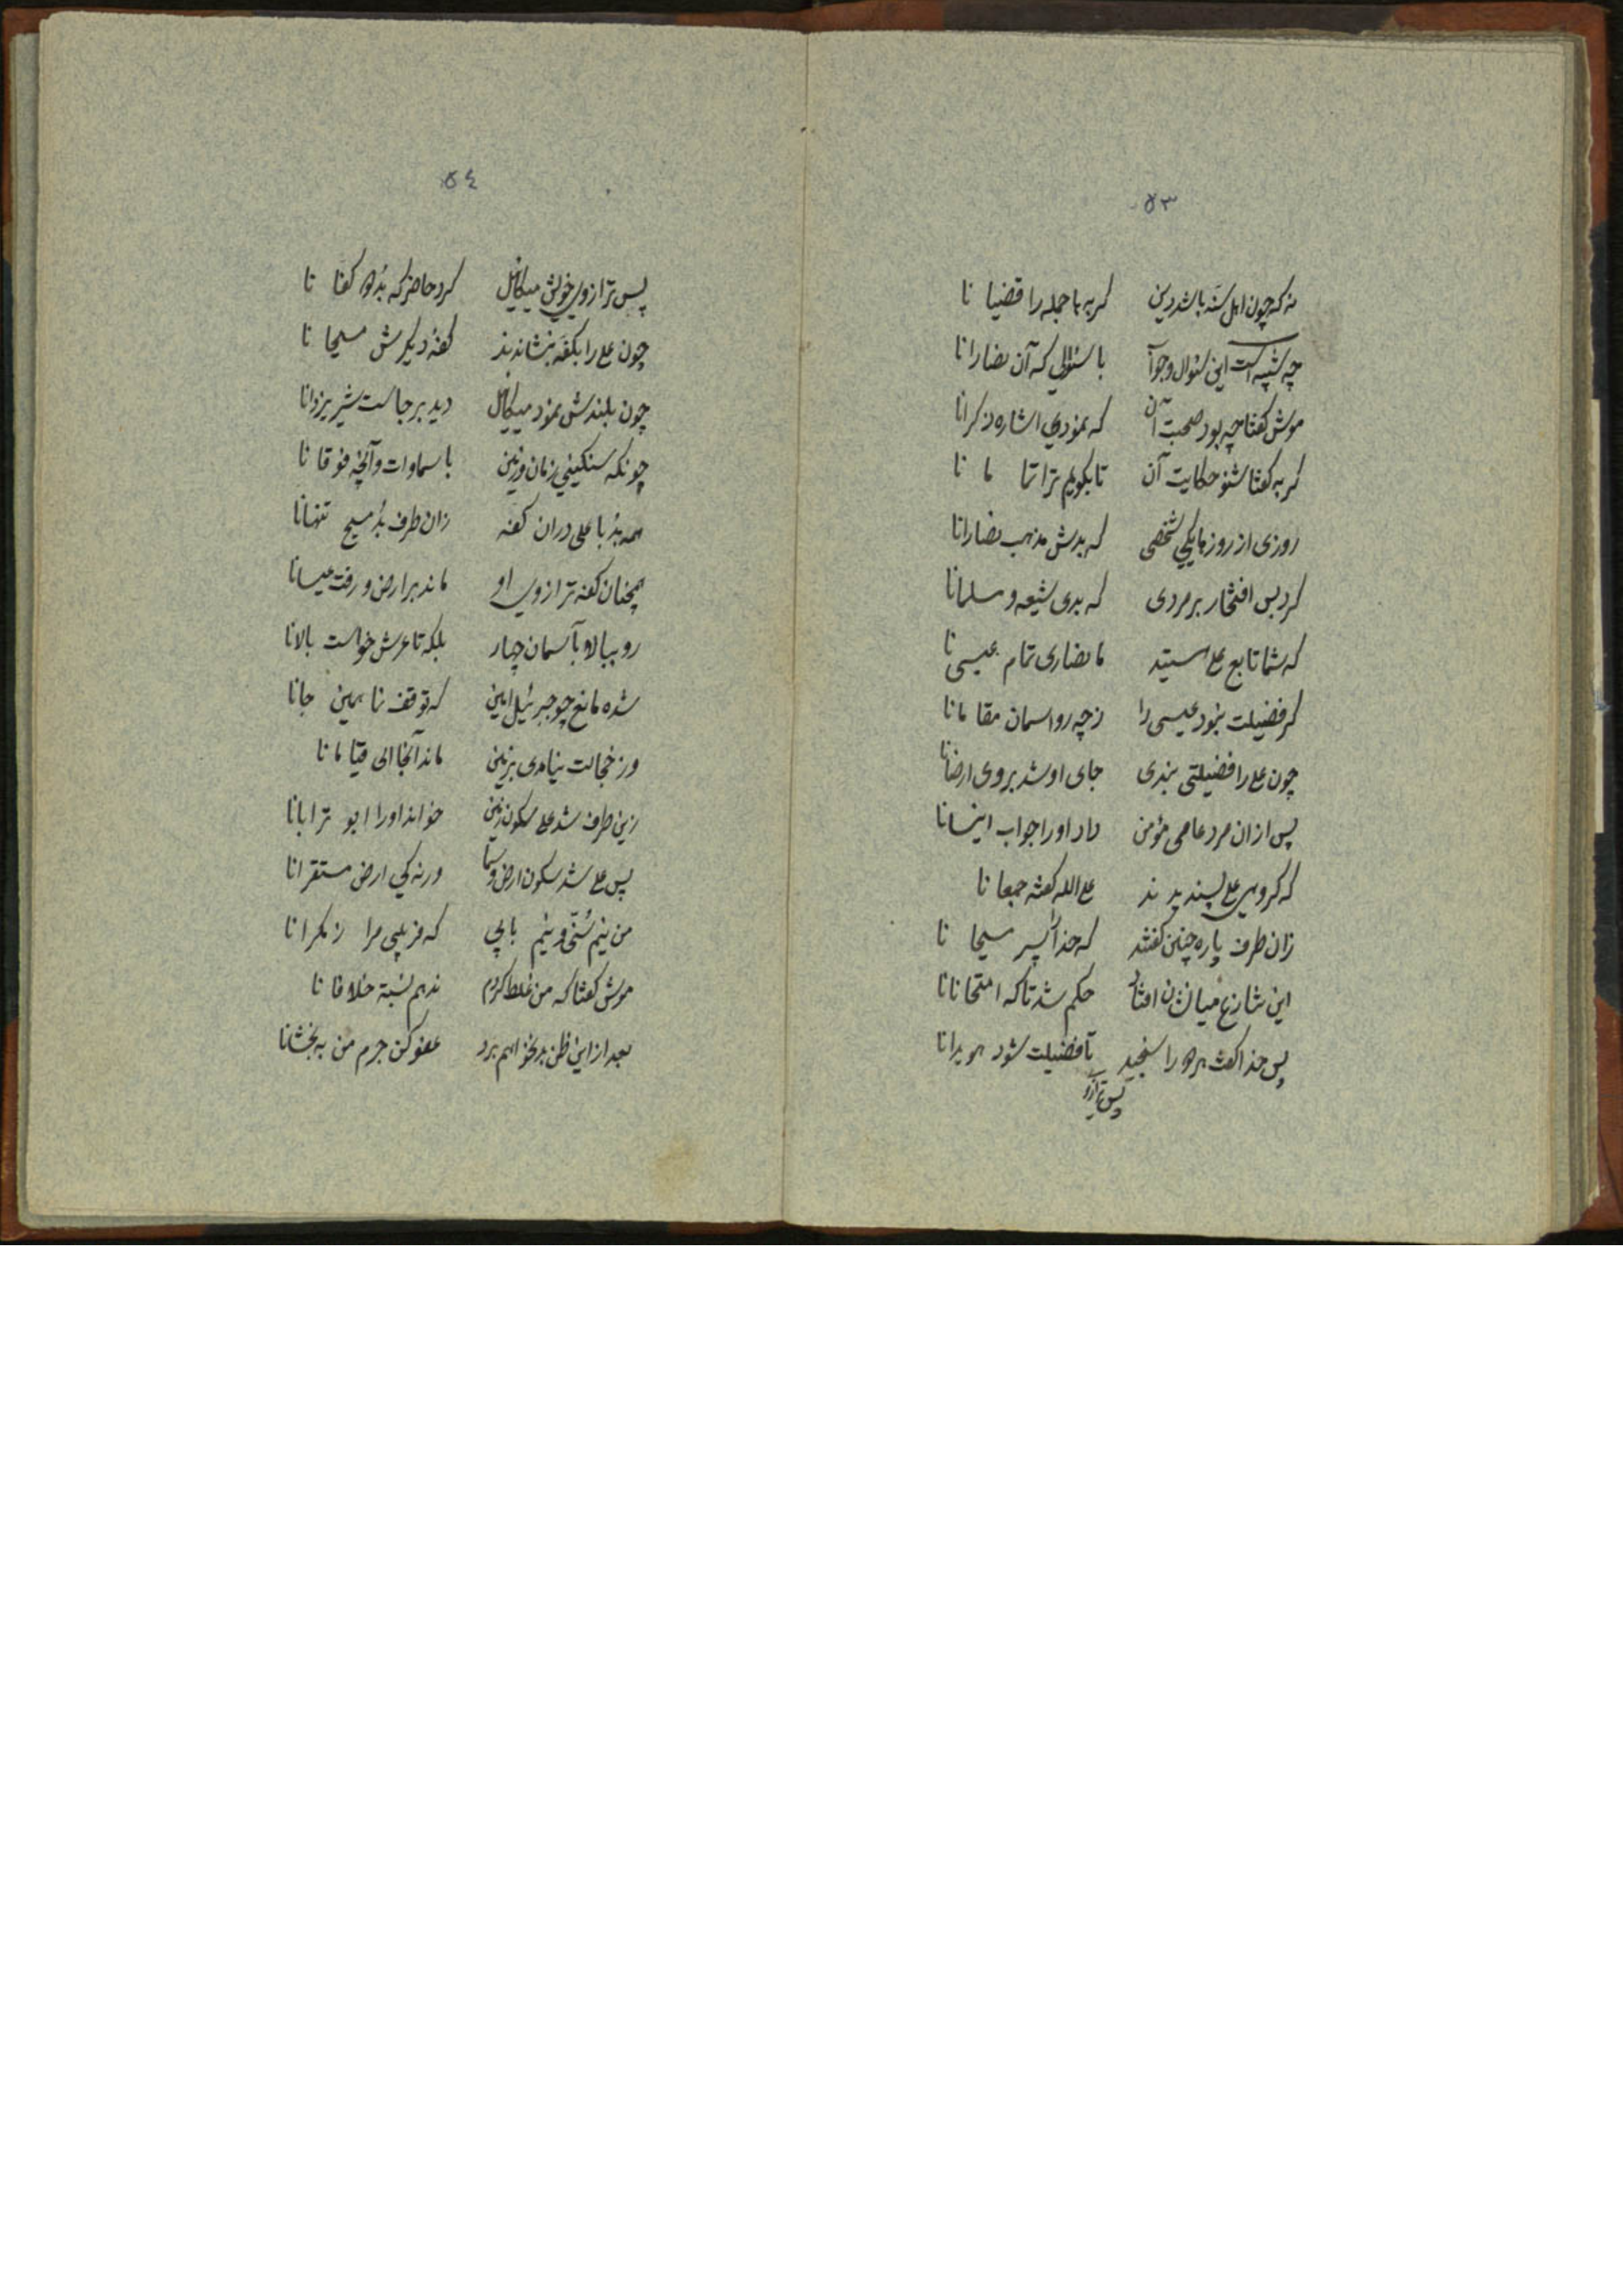 ۵۳
نه که چون اهل سنه باشد دین گربه با جمله را قضیا نا
چه شبیه است این سئوال و جوآ با سئوالی که آن نصارانا
موش گفتا چه بود صحبت آن که نمودی اشاره ذکرانا
گربه گفتا شنو حکایت آن تا بگویم ترا تما ما نا
روزی از روزهایکی شخصی که بدش مذهب نصارانا
کرد بس افتخار بر مردی که بدی شیعه و سلمانا
که شما تابع علی هستید ما نصاری تمام عیسی نا
گر فضیلت نبود عیسی را ز چه رو اسمان مقامانا
چون علی را فضیلتی بندی جای او شد بروی ارضانا
پس از ان مرد عامی مؤمن داد او را جواب اینسانا
که گروهی علی پسندیدند علی الله گفته جمعا نا
زان طرف پاره چنین گفتند که خدا را پسر مسیحا نا
این تنازع میانشان افتاد حکم شد تا که امتحانانا
پس خدا گفت هر دو را سنجید تا فضیلت شود هویدانا
پس ترازو
۵٤
پس ترازوی خویش میکائیل کرد حاضر که بد دو کفا نا
چون علی را بکفه بنشاندند کفه دیگرش مسیحا نا
چون بلندش نمود میکائیل دید بر جاست شیر یزدانا
چونکه سنگینی زمان و زمین با سماوات و آنچه فوقا نا
همه بد با علی دران کفه زان طرف بد مسیح تنهانا
همچنان کفه ترازوی او ماند بر ارض و رفت عیسانا
رو ببالا و بآسمان چهار بلکه تا عرش خواست بالانا
شده مانع چو جبرئیل امین که توقف نما همین جانا
وز خجالت نیامدی بزمین ماند آنجا الی قیامانا
زین طرف شد علی سکون زمین خواند او را ابو ترابانا
پس علی شد سکون ارض و سما ورنه کی ارض مستقرانا
من نیم سنی و نیم بابی که فریبی مرا ز مکرانا
موش گفتا که من غلط کردم ندهم نسبة خلافا نا
بعد از این ظن بد نخواهم برد عفو کن جرم من به بخشانا